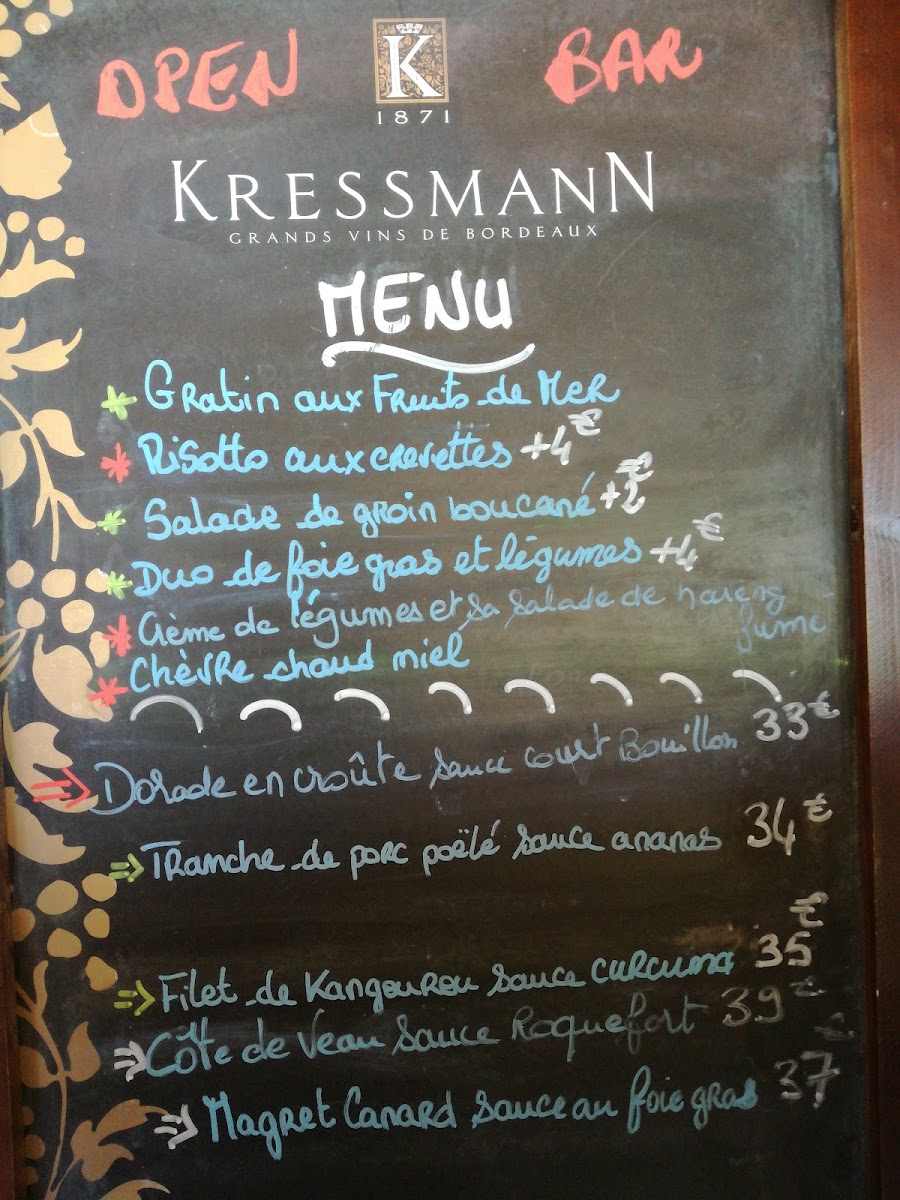 OPEN K BAR
1871
KRESSMANN
GRANDS VINS DE BORDEAUX
MENU
* Gratin aux Fruits de Mer
* Risotto aux crevettes +4€
* Salade de groin boucané +2€
* Duo de foie gras et légumes +4€
* Crème de légumes et sa salade de hareng
fumé
* Chèvre chaud miel
⇒ Dorade en croûte sauce court Bouillon 33€
⇒ Tranche de porc poëlé sauce ananas 34€
⇒ Filet de Kangourou sauce curcuma 35€
⇒ Côte de Veau sauce Roquefort 39€
⇒ Magret Canard sauce au foie gras 37€